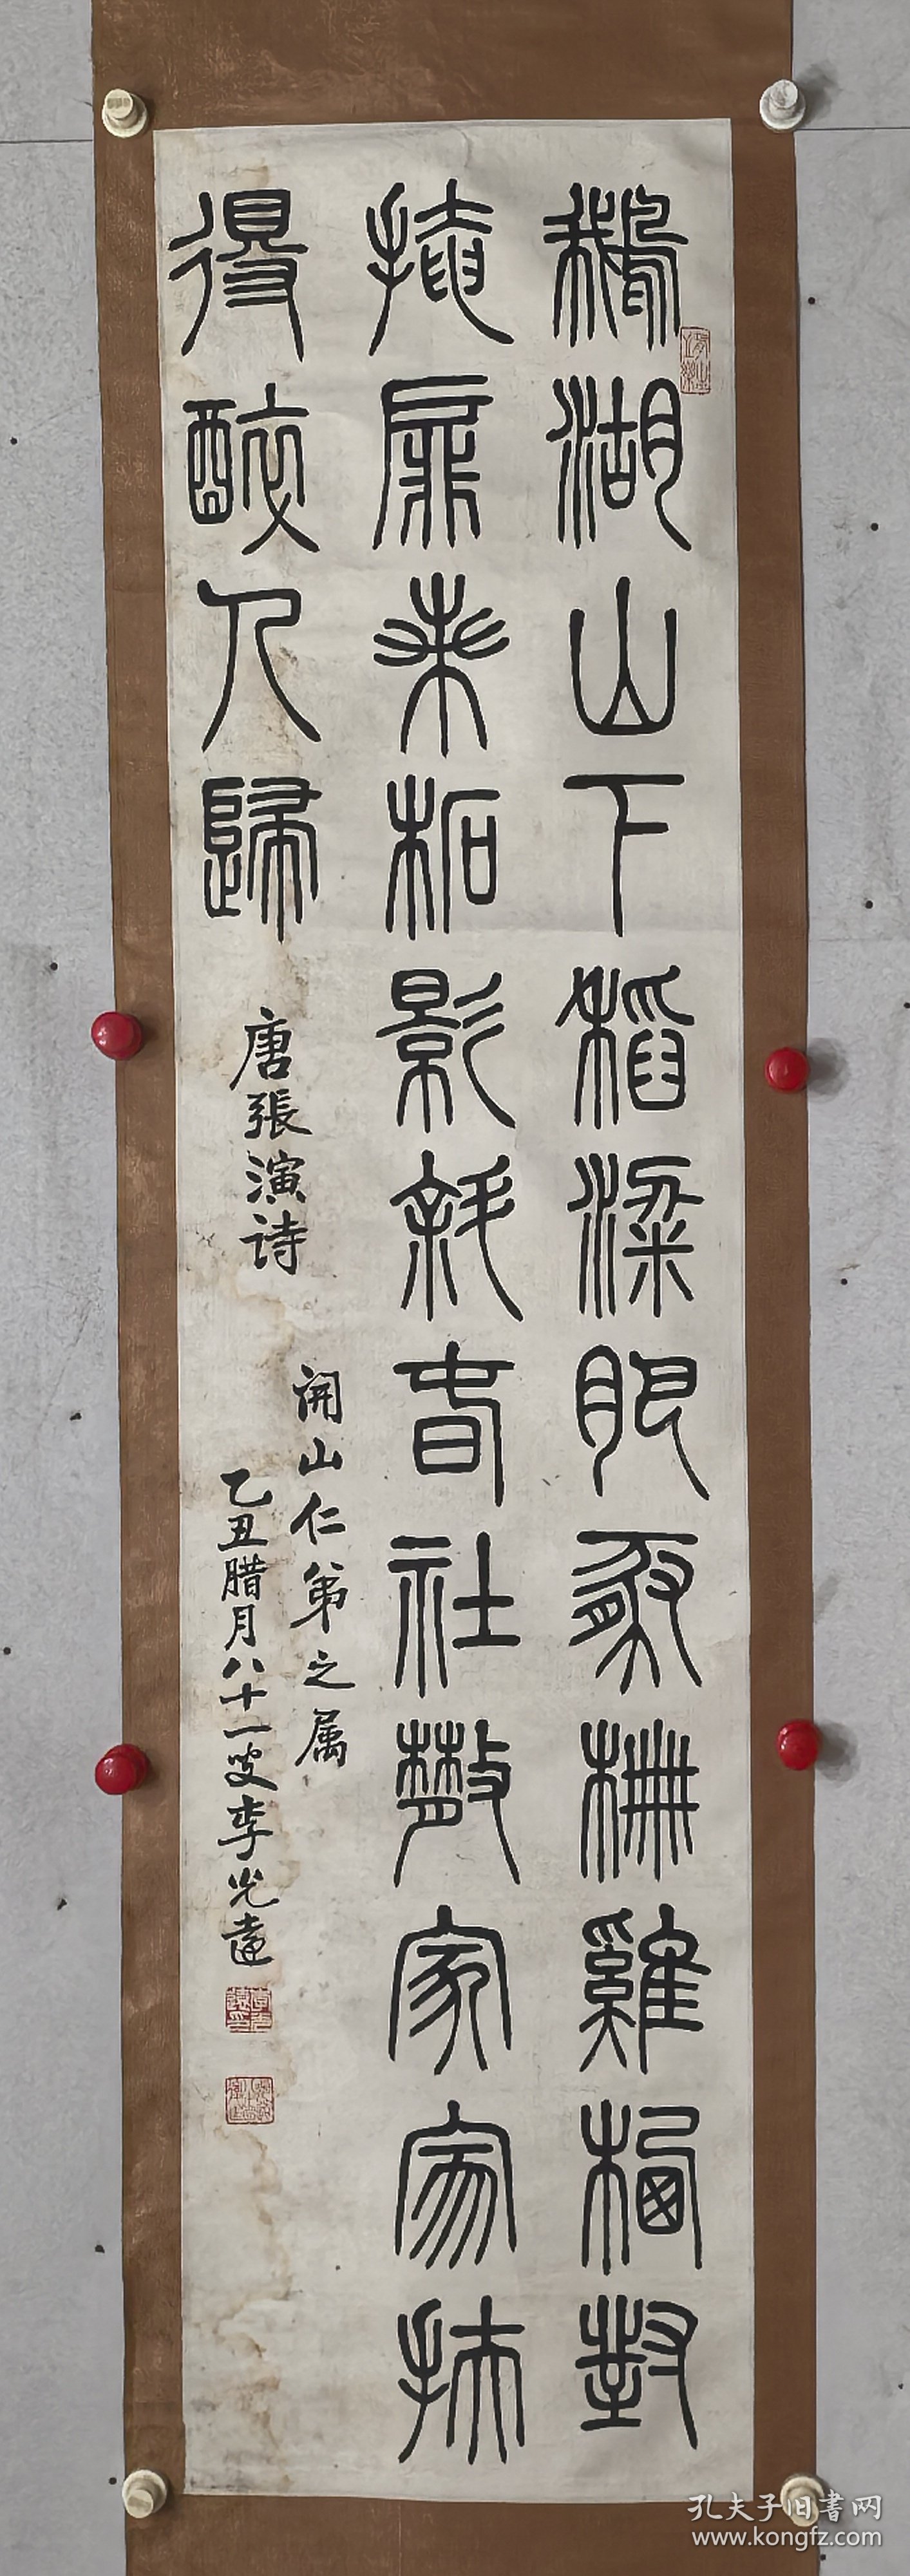 鵝湖山下稻粱肥豚柵雞栖對
掩扉桑柘影斜春社散家家扶
得醉人歸
唐張演诗
開山仁弟之属
乙丑腊月八十一叟李光遠
孔夫子旧書网
www.kongfz.com